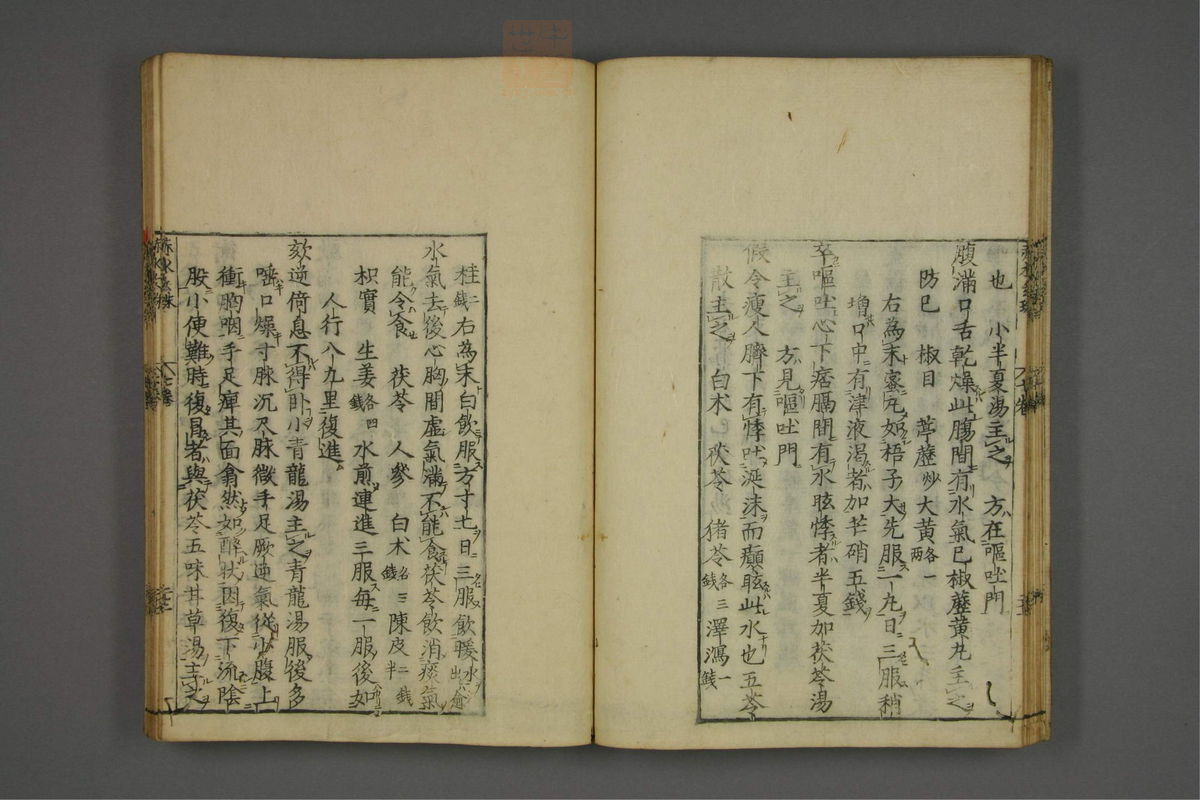 也　小半夏湯主之　方在嘔吐門
腹滿口舌乾燥此腸間有水氣已椒藶黄丸主之
防已　椒目　葶藶炒　大黄各一兩
右為末蜜丸如梧子大先服一丸日三服稍
増口中有津液渇者加芒硝五錢
卒嘔吐心下痞膈間有水眩悸者半夏加茯苓湯
主之　方見嘔吐門
假令瘦人臍下有悸吐涎沫而癲眩此水也五苓
散主之　白朮　茯苓　猪苓各三錢　澤瀉一錢
桂二錢　右為末白飲服方寸匕日三服飲暖水出愈
水氣去後心胸間虚氣滿不能食茯苓飲消痰氣
能令食　茯苓　人參　白朮各三錢　陳皮二錢半
枳實　生姜各四錢　水煎連進三服毎一服後如
人行八九里復進
欬逆倚息不得卧小青龍湯主之青龍湯服後多
唾口燥寸脉沉尺脉微手足厥逆氣從少腹上
衝胸咽手足痺其面翕然如醉状因復下流陰
股小便難時復冒者與茯苓五味甘草湯主之